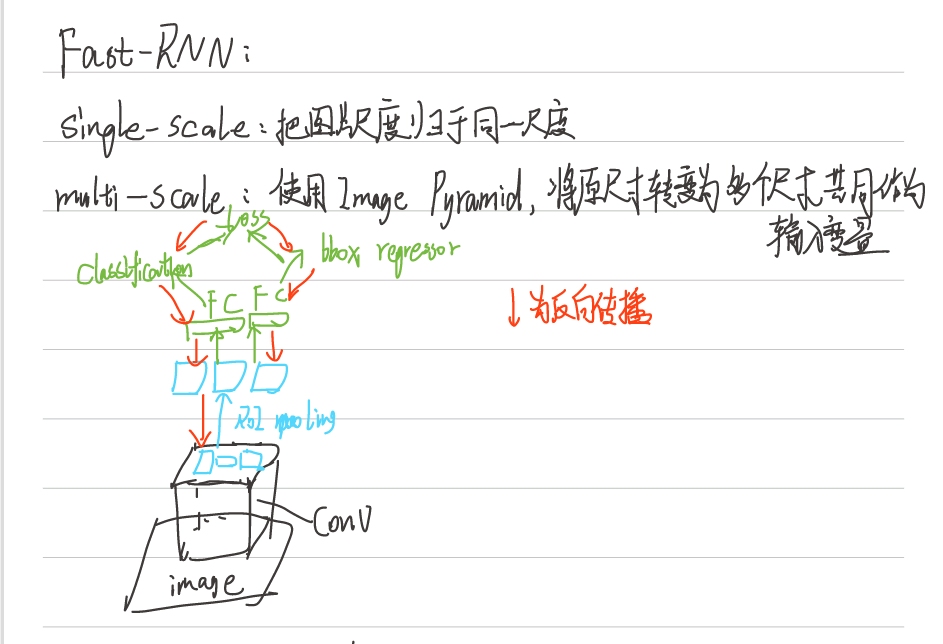 Fast-RNN:
single-scale:把图片尺度归于同一尺度
multi-scale:使用Image Pyramid,将原尺寸转变为多个尺寸共同作为
输入变量
Loss
classification
bbox regressor
FC FC
↓为反向传播
RoI pooling
Conv
image